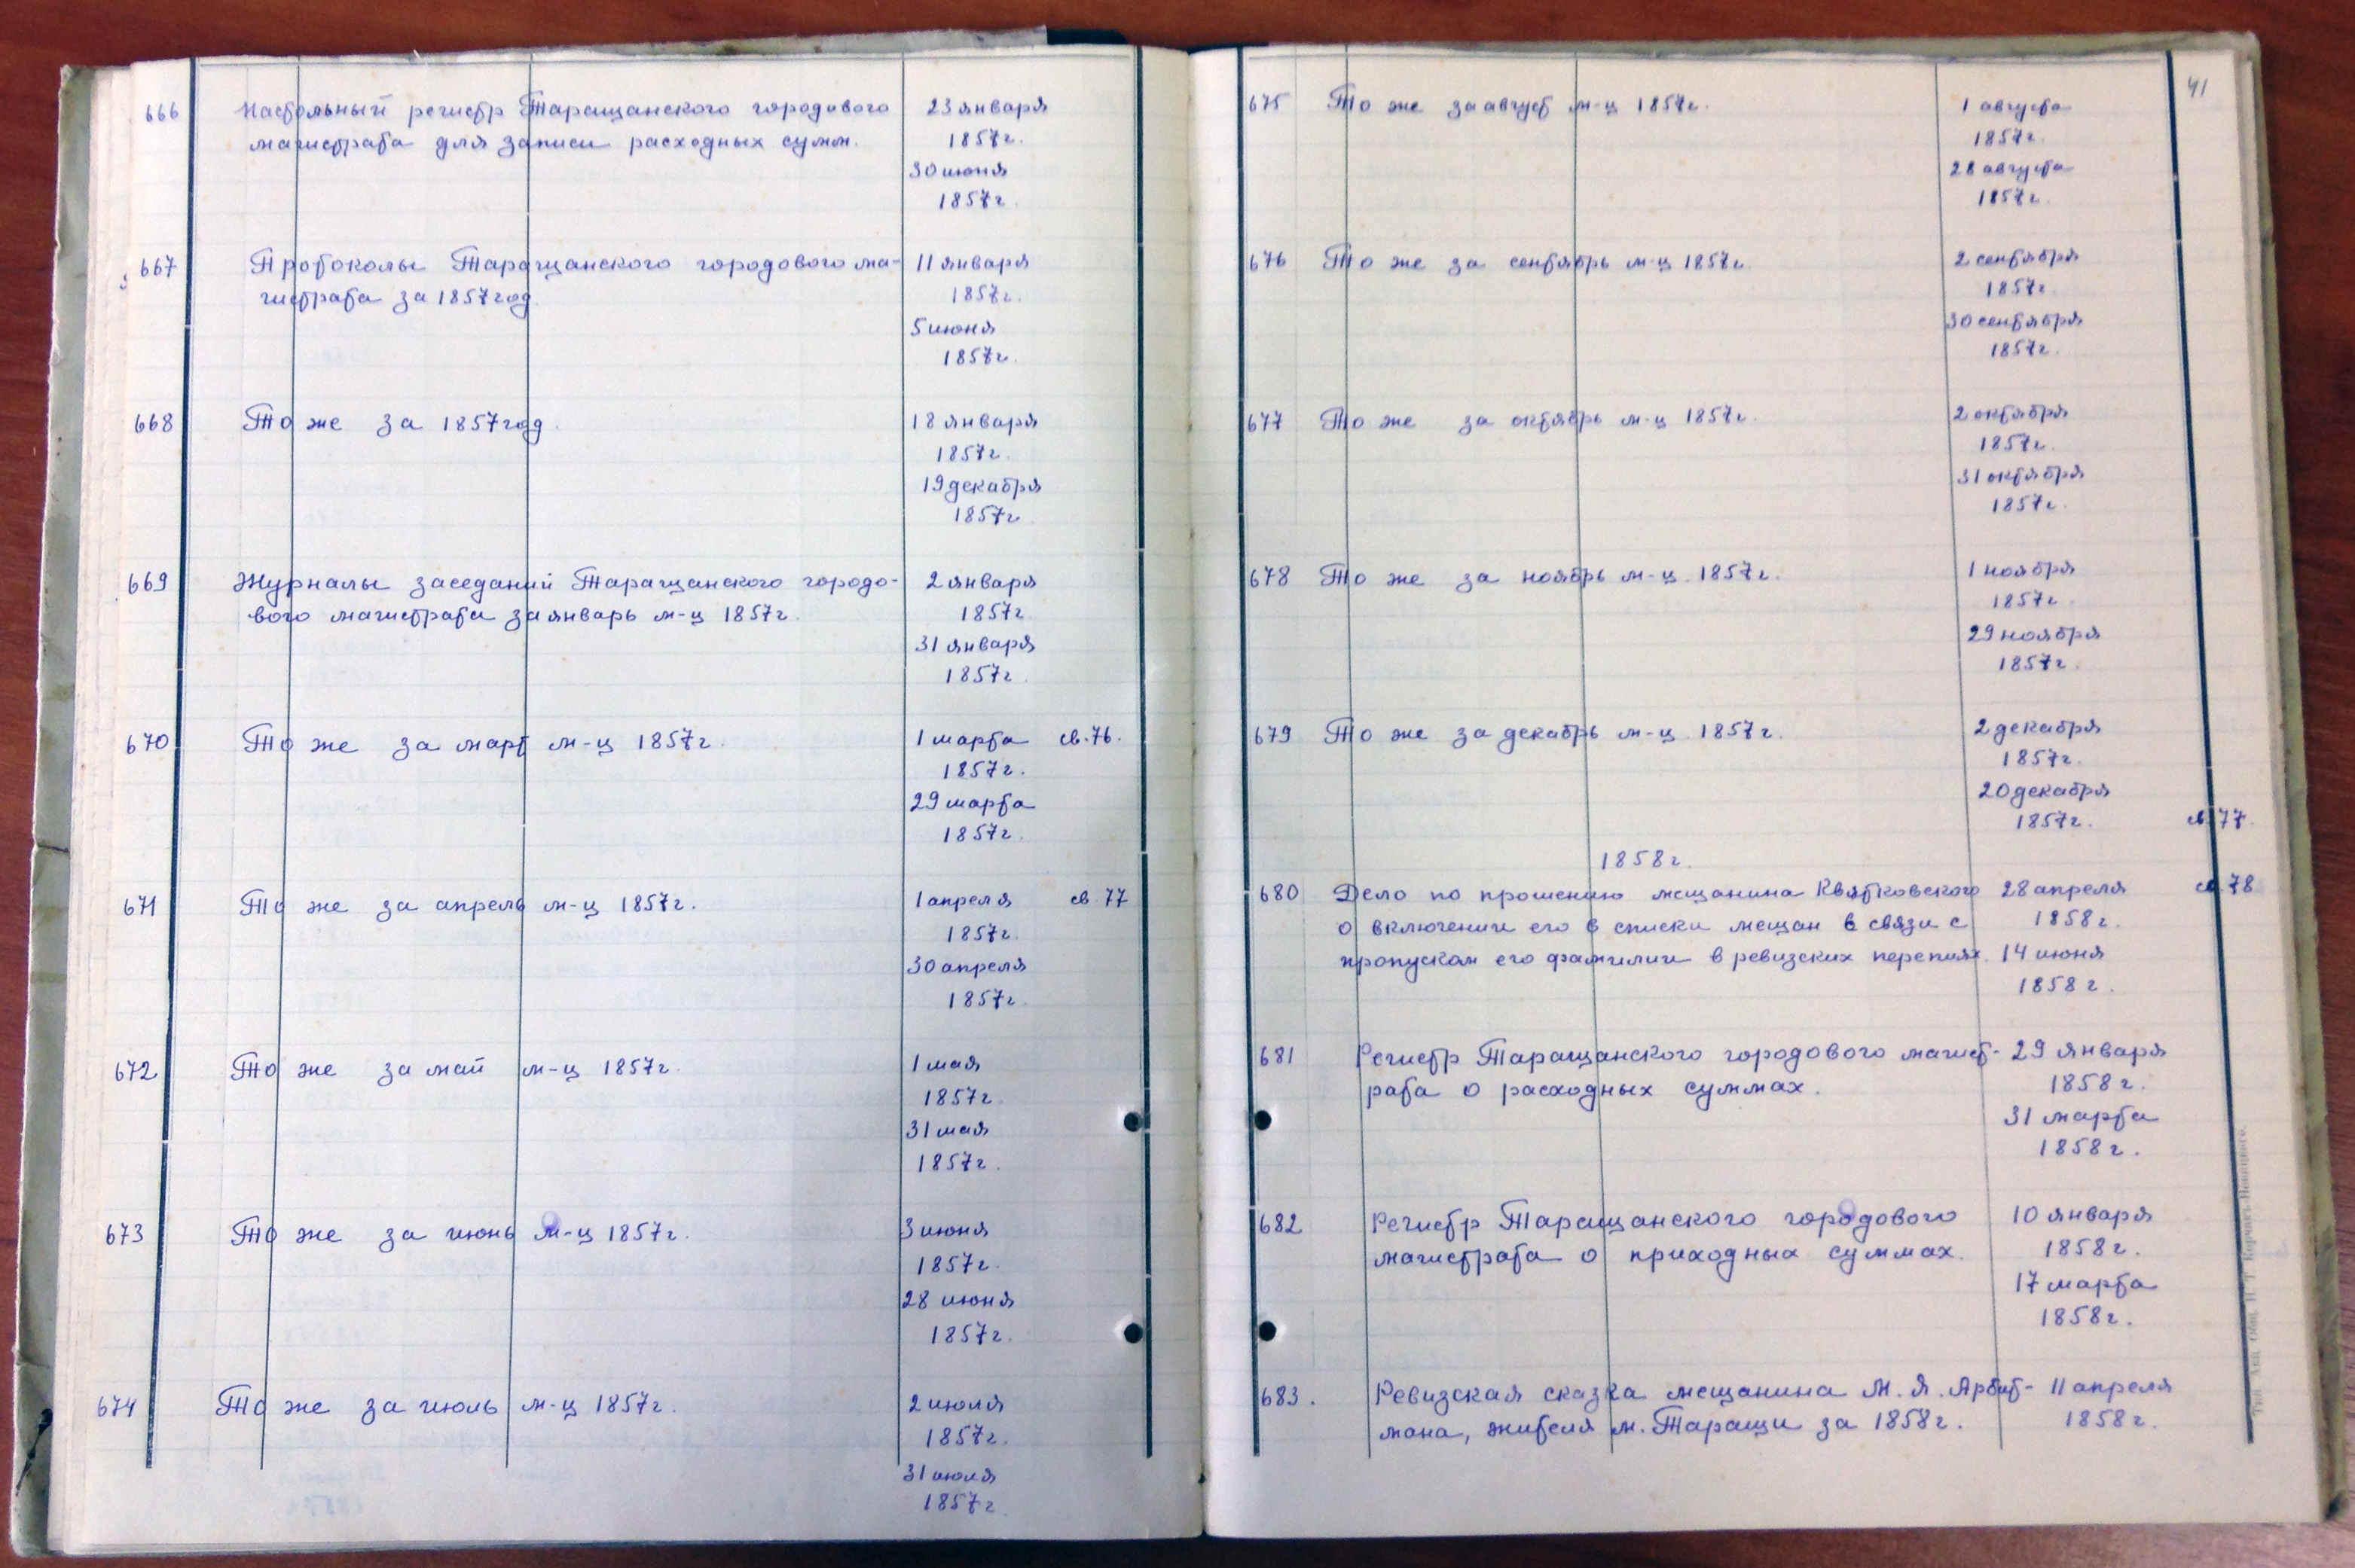 666 Настольный регистр Таращанского городового 23 января
магистрата для записи расходных сумм. 1857г.
30 июня
1857г.
667 Протоколы Таращанского городового ма- 11 января
гистрата за 1857год. 1857г.
5 июня
1857г.
668 То же за 1857год. 18 января
1857г.
19 декабря
1857г.
669 Журналы заседаний Таращанского городо- 2 января
вого магистрата за январь м-ц 1857г. 1857г.
31 января
1857г.
670 То же за март м-ц 1857г. 1 марта св.76.
1857г.
29 марта
1857г.
671 То же за апрель м-ц 1857г. 1 апреля св.77
1857г.
30 апреля
1857г.
672 То же за май м-ц 1857г. 1 мая
1857г.
31 мая
1857г.
673 То же за июнь м-ц 1857г. 3 июня
1857г.
28 июня
1857г.
674 То же за июль м-ц 1857г. 2 июля
1857г.
31 июля
1857г.
41
675 То же за август м-ц 1857г. 1 августа
1857г.
28 августа
1857г.
676 То же за сентябрь м-ц 1857г. 2 сентября
1857г.
30 сентября
1857г.
677 То же за октябрь м-ц 1857г. 2 октября
1857г.
31 октября
1857г.
678 То же за ноябрь м-ц. 1857г. 1 ноября
1857г.
29 ноября
1857г.
679 То же за декабрь м-ц. 1857г. 2 декабря
1857г.
20 декабря
1857г. св.77.
1858г.
680 Дело по прошению мещанина Квятковского 28 апреля св.78
о включении его в списки мещан в связи с 1858г.
пропуском его фамилии в ревизских переписях. 14 июня
1858г.
681 Регистр Таращанского городового магист- 29 января
рата о расходных суммах. 1858г.
31 марта
1858г.
682 Регистр Таращанского городового 10 января
магистрата о приходных суммах. 1858г.
17 марта
1858г.
683. Ревизская сказка мещанина М. Я. Арбит- 11 апреля
мана, жителя м. Таращи за 1858г. 1858г.